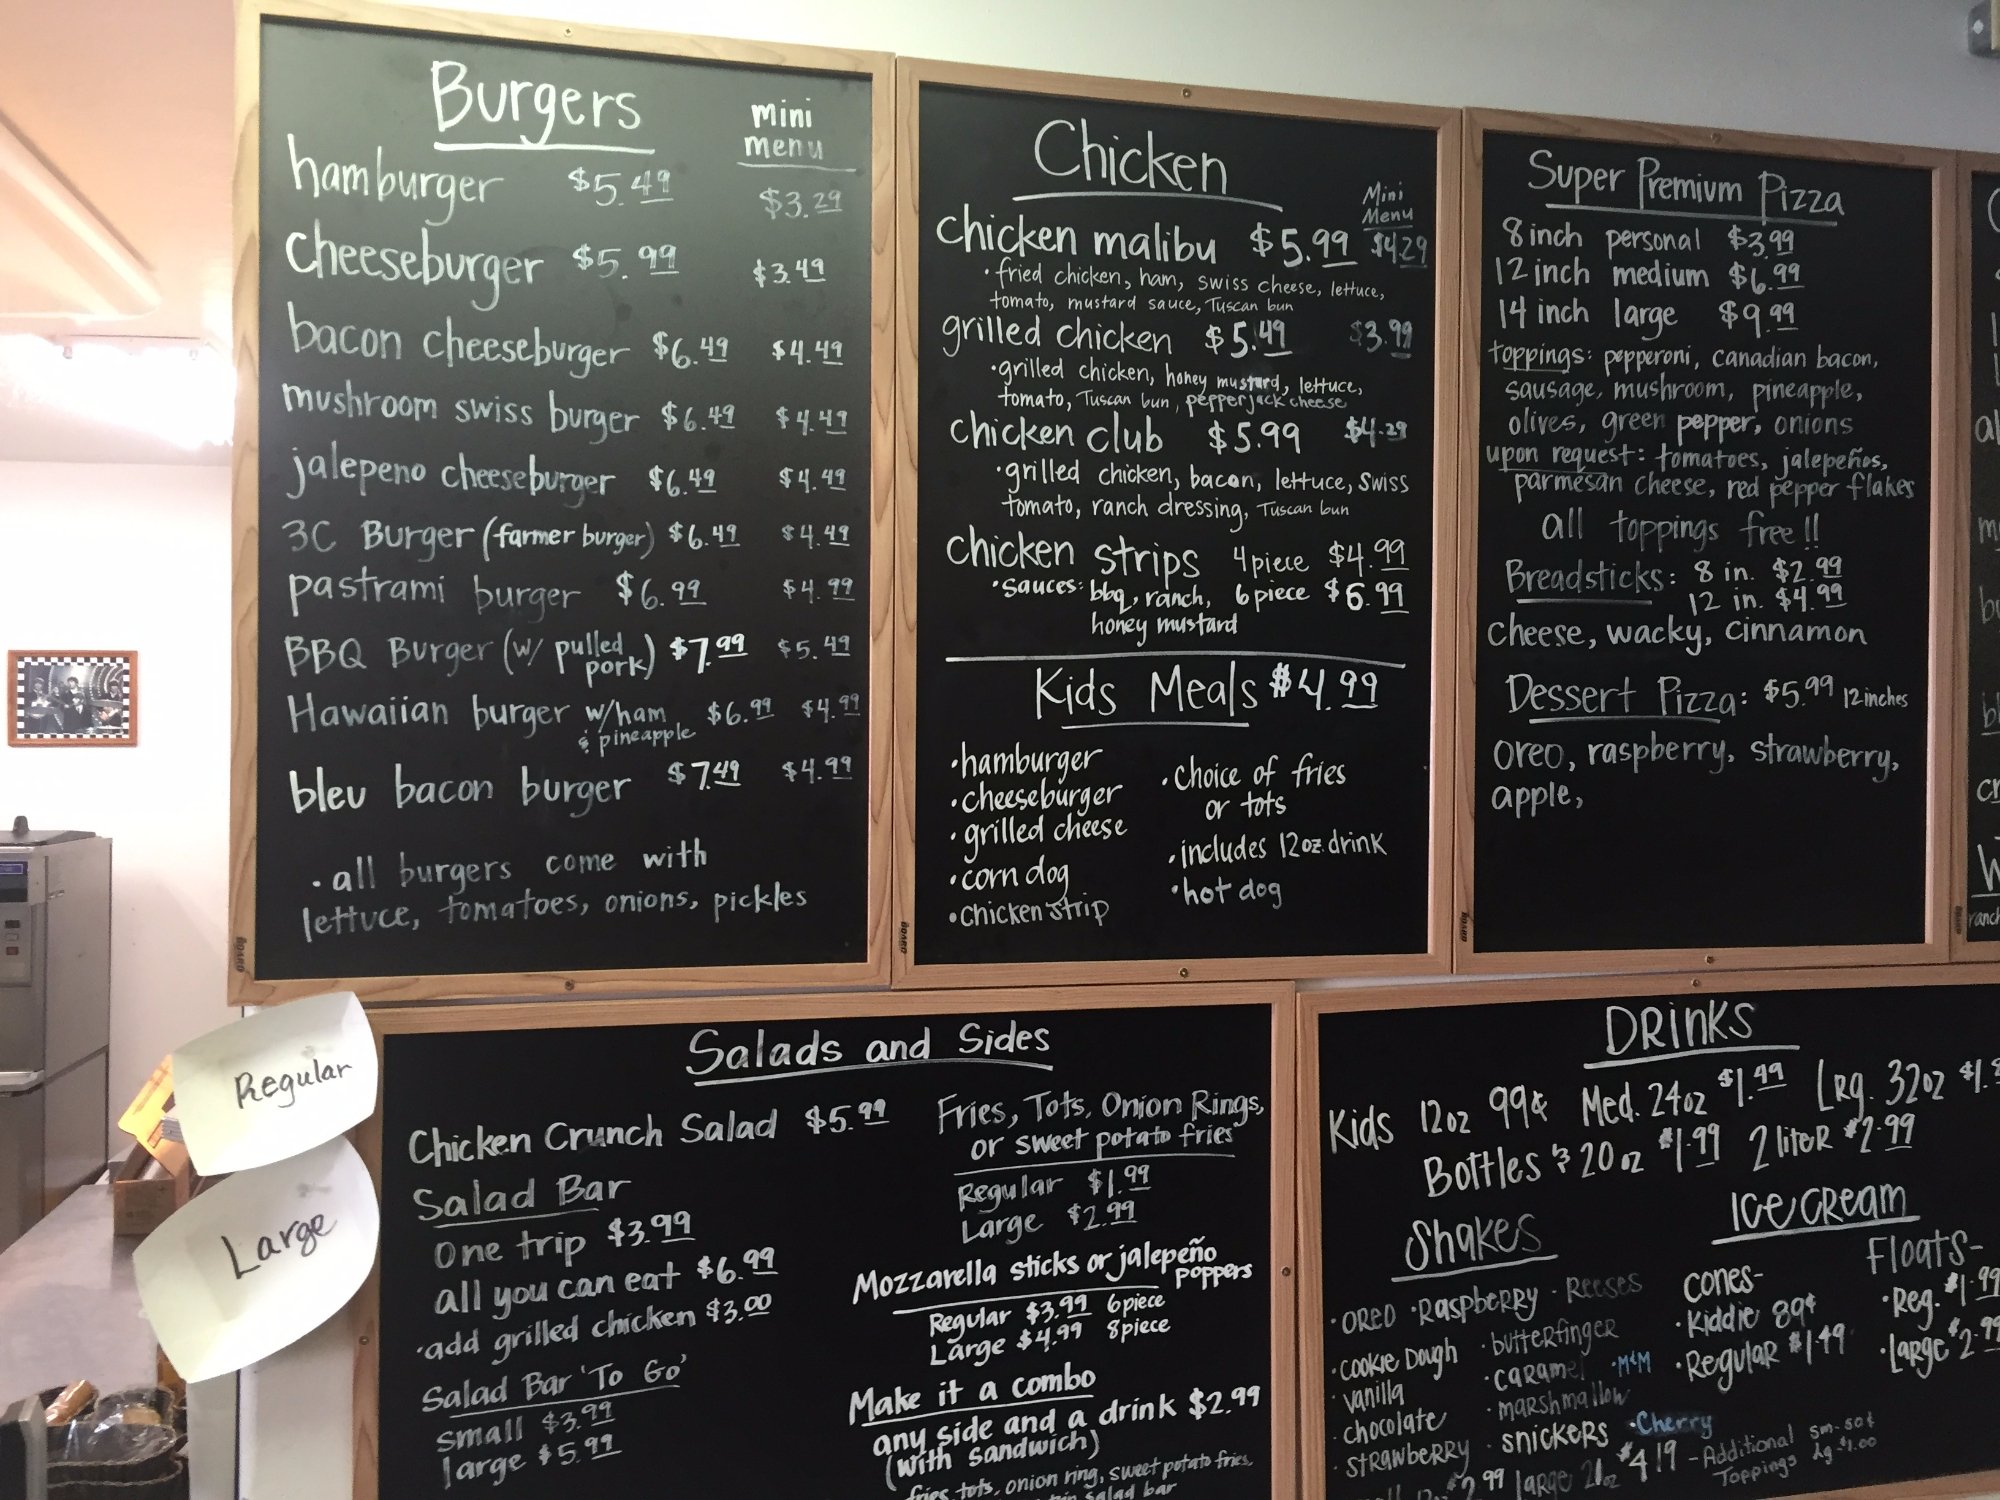 Burgers
mini
menu
hamburger $5.49 $3.29
cheeseburger $5.99 $3.49
bacon cheeseburger $6.49 $4.49
mushroom swiss burger $6.49 $4.49
jalepeno cheeseburger $6.49 $4.49
3C Burger (farmer burger) $6.49 $4.49
pastrami burger $6.99 $4.99
BBQ Burger (w/ pulled pork) $7.99 $5.49
Hawaiian burger w/ham $6.99 $4.99
& pineapple
bleu bacon burger $7.49 $4.99
• all burgers come with
lettuce, tomatoes, onions, pickles
Chicken
Mini
Menu
chicken malibu $5.99 $4.29
• fried chicken, ham, swiss cheese, lettuce,
tomato, mustard sauce, Tuscan bun
grilled chicken $5.49 $3.99
• grilled chicken, honey mustard, lettuce,
tomato, Tuscan bun, pepperjack cheese
chicken club $5.99 $4.29
• grilled chicken, bacon, lettuce, swiss
tomato, ranch dressing, Tuscan bun
chicken strips 4 piece $4.99
• sauces: bbq, ranch, 6 piece $6.99
honey mustard
Kids Meals $4.99
• hamburger
• cheeseburger
• grilled cheese
• corn dog
• chicken strip
• choice of fries
or tots
• includes 12oz. drink
• hot dog
Super Premium Pizza
8 inch personal $3.99
12 inch medium $6.99
14 inch large $9.99
toppings: pepperoni, canadian bacon,
sausage, mushroom, pineapple,
olives, green pepper, onions
upon request: tomatoes, jalepeños,
parmesan cheese, red pepper flakes
all toppings free!!
Breadsticks: 8 in. $2.99
12 in. $4.99
cheese, wacky, cinnamon
Dessert Pizza: $5.99 12 inches
oreo, raspberry, strawberry,
apple,
BOARD
BOARD
BOARD
Regular
Large
Salads and Sides
Chicken Crunch Salad $5.99
Salad Bar
one trip $3.99
all you can eat $6.99
• add grilled chicken $3.00
Salad Bar 'To Go'
small $3.99
large $5.99
Fries, Tots, Onion Rings,
or sweet potato fries
Regular $1.99
Large $2.99
Mozzarella sticks or jalepeño
poppers
Regular $3.99 6 piece
Large $4.99 8 piece
Make it a combo
any side and a drink $2.99
(with sandwich)
fries, tots, onion ring, sweet potato fries,
salad bar
DRINKS
Kids 12oz 99¢ Med. 24oz $1.49 Lrg. 32oz
Bottles 20oz $1.99 2 liter $2.99
Shakes
• OREO • Raspberry • Reeses
• cookie Dough • butterfinger
• vanilla • caramel • M&M
• chocolate • marshmallow
• strawberry • snickers • Cherry
large 21oz $4.19
Ice cream
cones-
• Kiddie 89¢
• Regular $1.49
Floats-
• Reg. $1.99
• large $2.99
- Additional sm. 50¢
Toppings lg $1.00